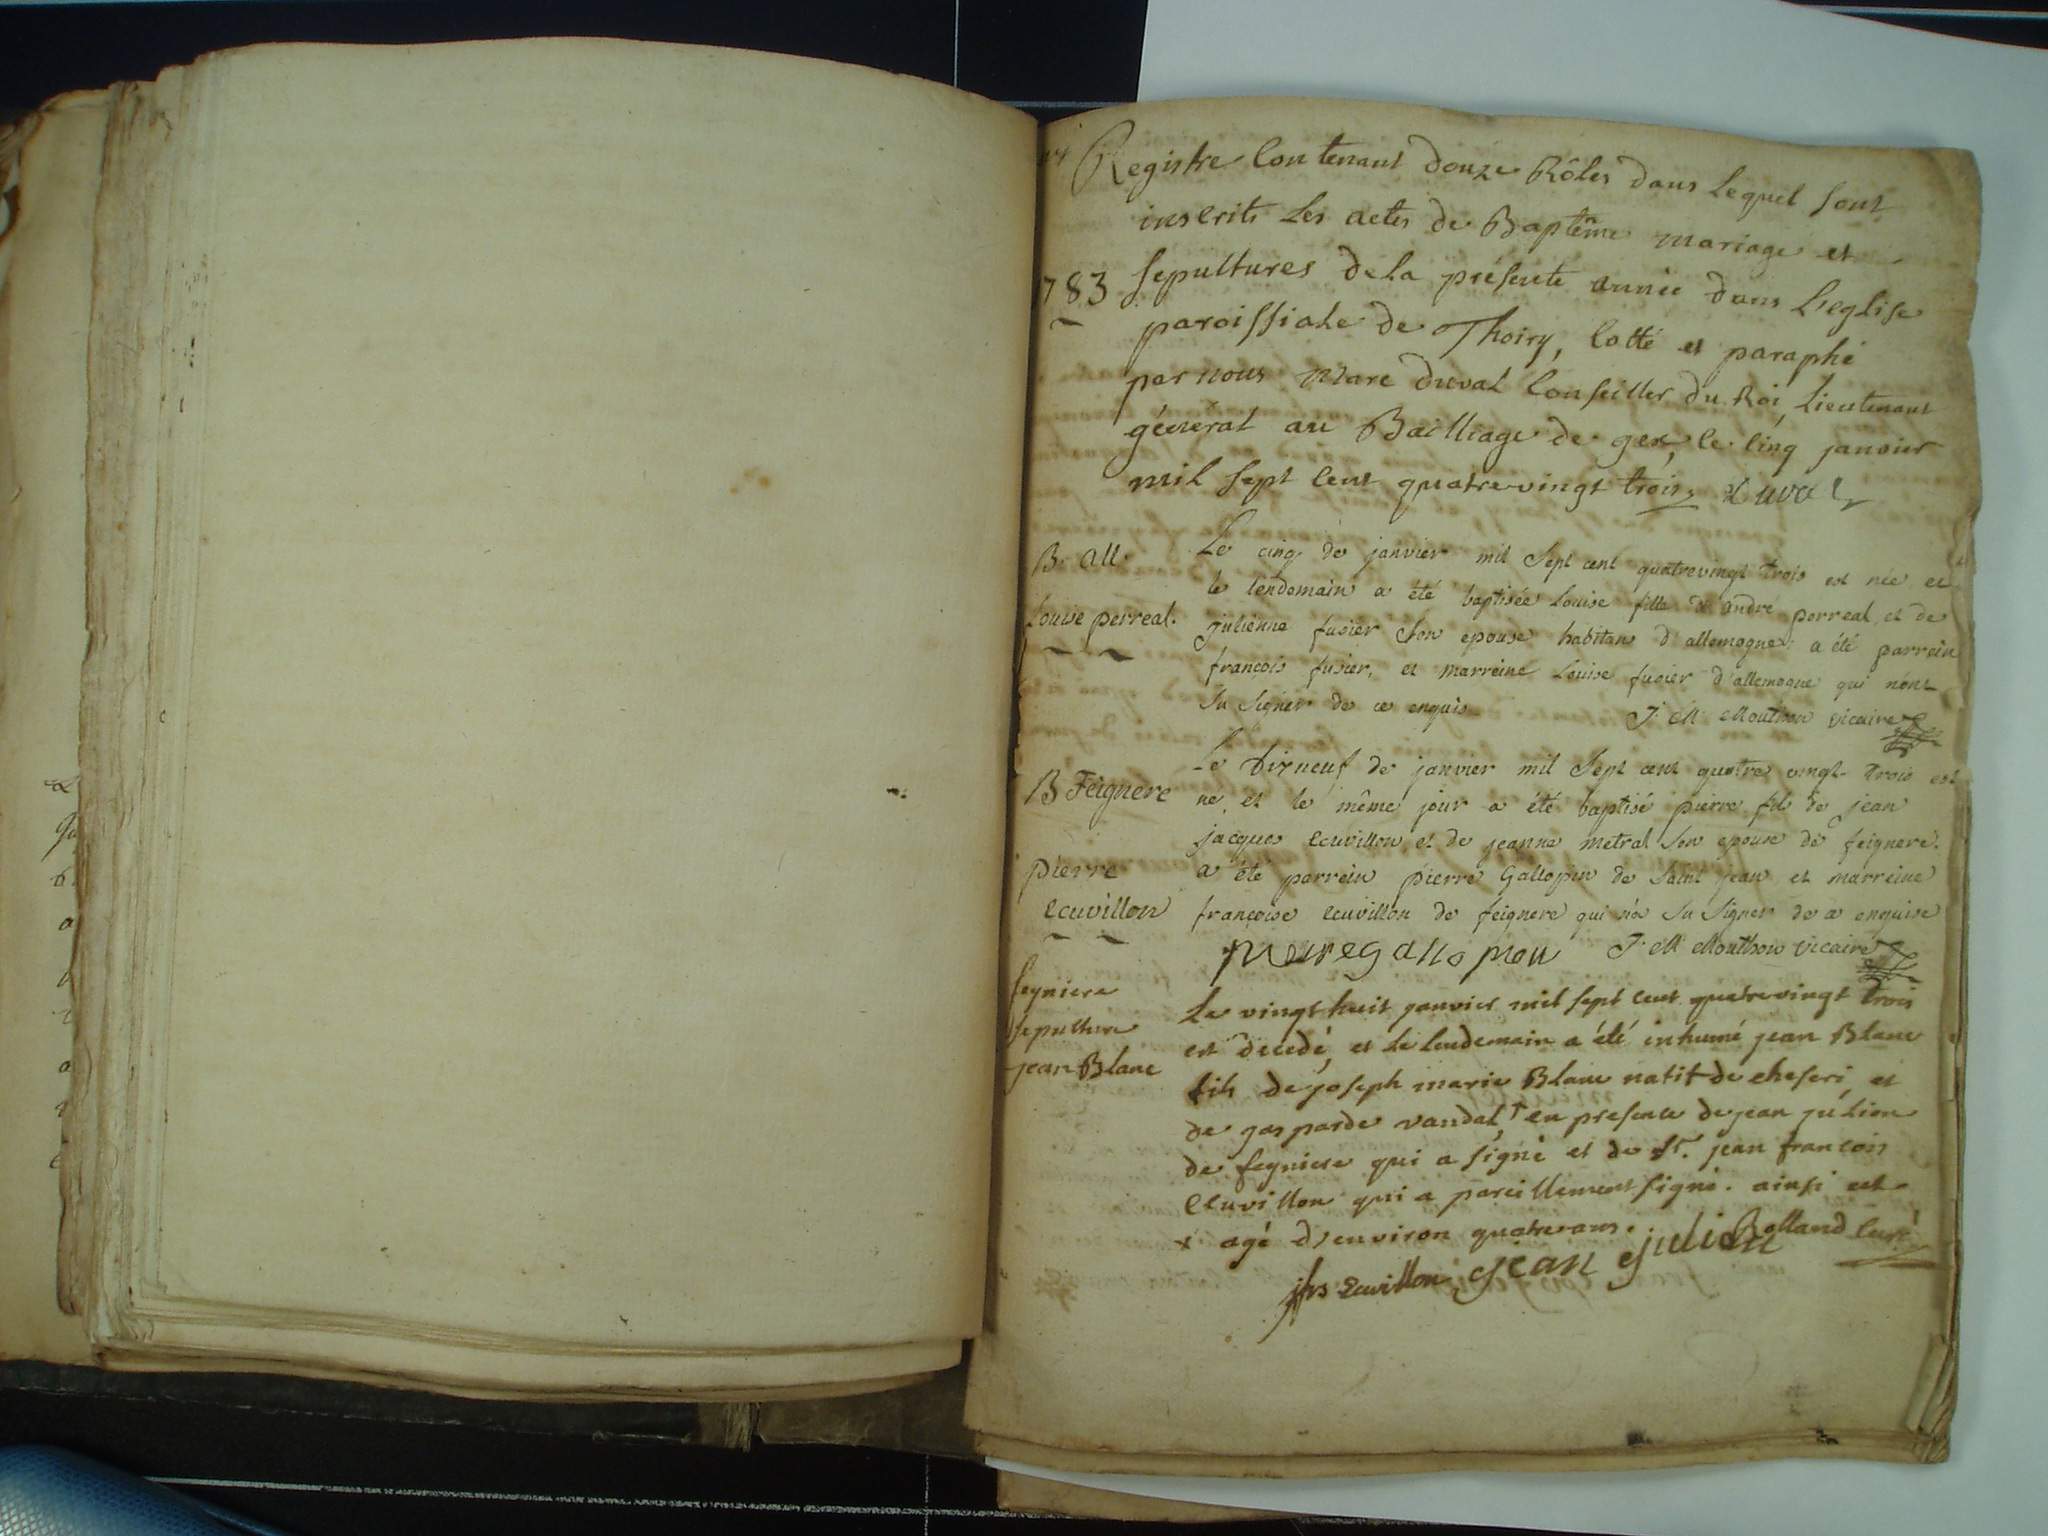 Registre Contenant douze Rôles dans Lequel sont
inscrits Les actes de Baptême mariage et
1783
sepultures de la présente année dans L'eglise
paroissiale de Thoiry, Cotté et paraphé
par nous Marc Duval Conseiller du Roi, Lieutenant
général au Bailliage de gex, le Cinq janvier
mil sept Cent quatrevingt trois. Duval
B. All.
Louise perreal.
Le cinq de janvier mil Sept cent quatrevingt trois est née et
le lendemain a été baptisée Louise fille d'andré perreal et de
julienne fusier Son epouse habitans d'allemogne; a été parrein
françois fusier, et marreine Louise fusier d'allemogne qui n'ont
Su Signer de ce enquis J. M. Mouthon vicaire
B Feignere
pierre
ecuvillon
Le Dixneuf de janvier mil Sept cent quatre vingt trois est
né et le même jour a été baptisé pierre fils de jean
jacques ecuvillon et de jeanne metral Son epouse de feignere.
a été parrein pierre Gallopin de Saint jean et marreine
françoise ecuvillon de feignere qui n'a Su Signer de ce enquise
J. M. Mouthon vicaire
fegniere
sepulture
jean Blanc
Le vingt huit janvier mil sept Cent quatrevingt trois
est decedé, et Le Lendemain a été inhumé jean Blanc
fils de joseph marie Blanc natif de cheseri et
de gasparde vandal, † en presence de jean julien
de fegniere qui a signé et de Sr. jean françois
Ecuvillon qui a pareillement signé. ainsi est
x agé d'environ quatre ans. Rolland Curé
jfrs Ecuvillon jean julien